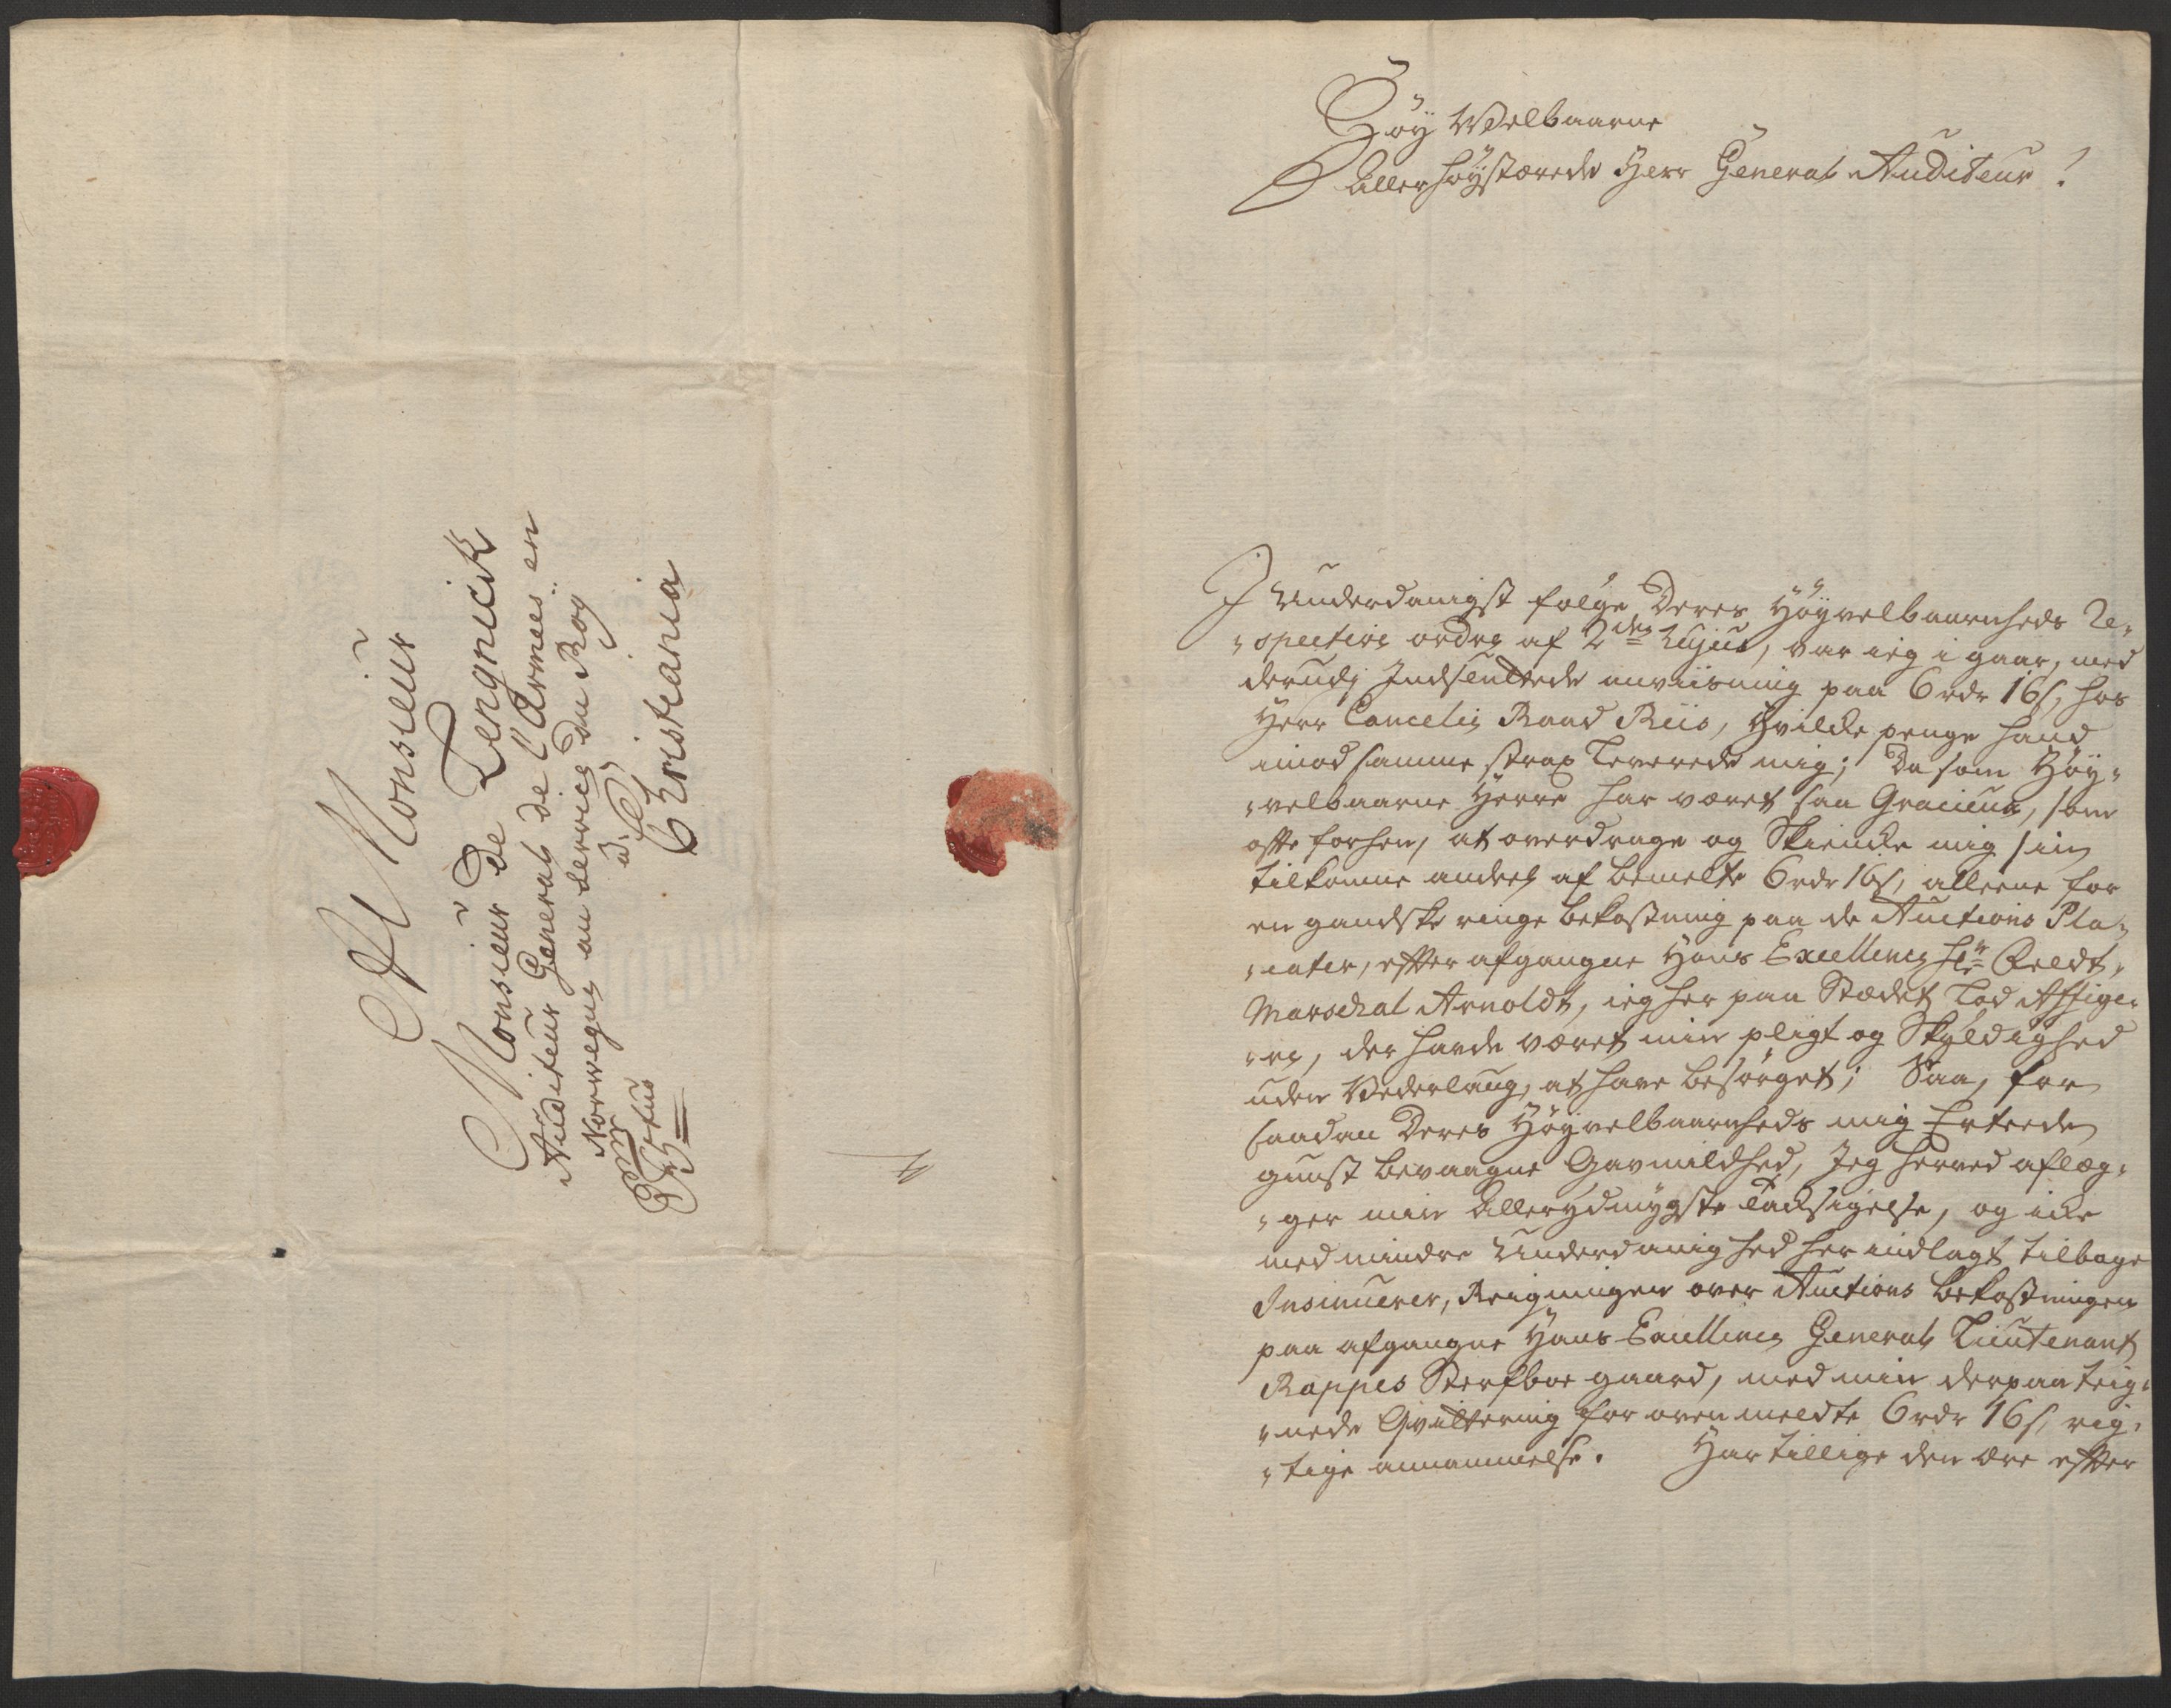 A Monsieur
Monsieur de Tengnick
Auditeur General de l'Armée en
Norwegue au service du Roy
à
Christiania
Høy Welbaarne
Allerhøystærede Herr General Auditeur!
I Underdanigst følge Deres Høyvelbaarnheds Re-
-spective ordre af 2den hujus, var ieg i gaar, med
derudj Indsluttede anviisning paa 6 rdr 16 s, hos
Herr Cancelie Raad Riis, hvilke penge hand
imod samme strax leverede mig; Da som Høy-
-velbaarne Herre har været saa Gracieux, som
offte forhen, at overdrage og Skiencke mig sin
tilkomne andeel af bemelte 6 rdr 16 s, alleene for
en gandske ringe bekostning paa de Auctions Pla-
-cater, effter afgangne Hans Excellence Hr Feldt-
Marschal Arnoldt, ieg her paa Stædet lod Affige-
-re, der havde været min pligt og Skyldighed
uden Vederlaug, at have besørget; Saa, for
saadan Deres Høyvelbaarnheds mig Erteede
gunst bevaagne Gavmildhed, Jeg herved aflæg-
-ger min Allerydmygste Tacksigelse, og icke
med mindre Underdanighed her indlagt tilbage
Insinuerer, Reigningen over Auctions bekostningen
paa afgangne Hans Excellence General Lieutenant
Rappes Sterfboe gaard, med min derpaa teig-
-nede Qvittering for ovenmeldte 6 rdr 16 s, rig-
-tige annammelse. Har tillige den ære effter